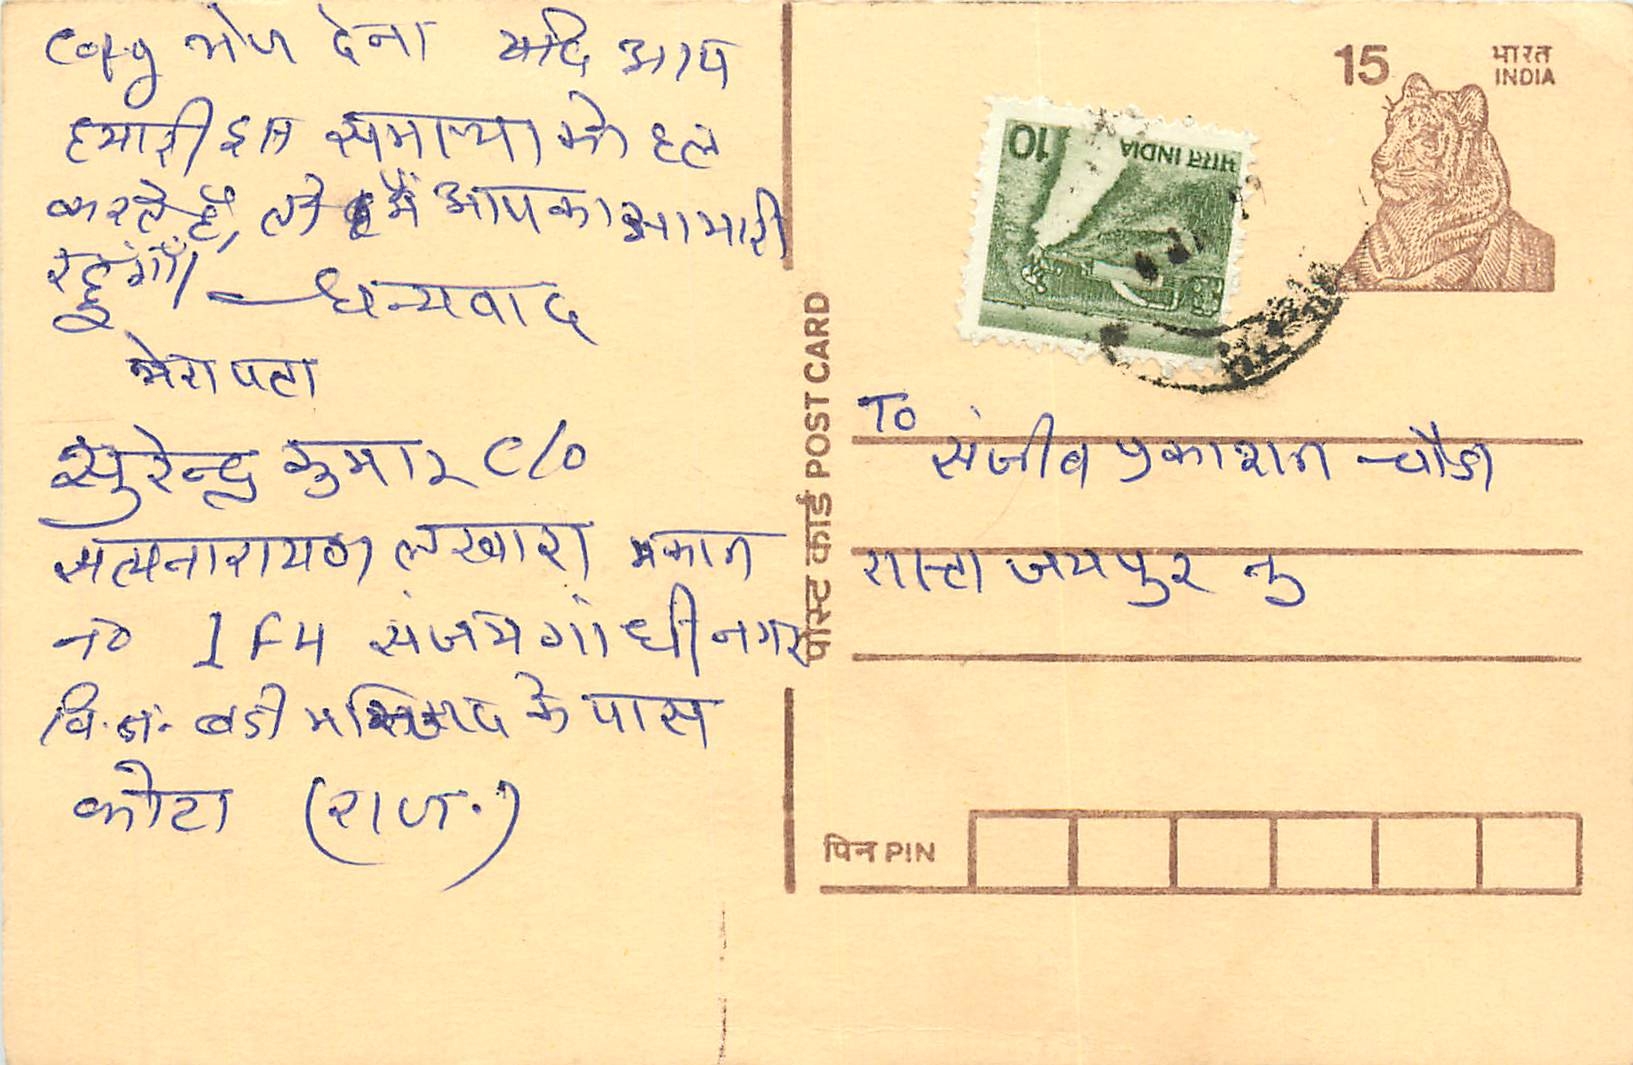 Copy भेज देना यदि आप
हमारी इस समस्या को हल
करते है, तो मैं आपका आभारी
रहूंगाँ।
धन्यवाद
मेरा पता
सुरेन्द्र कुमार C/O
सत्यनारायण लखारा मकान
न० 1 F 4 संजय गांधी नगर
वि. बडी मस्जिद के पास
कोटा (राज.)
पोस्ट कार्ड POST CARD
15 भारत
INDIA
10 भारत INDIA
To
संजीव प्रकाशन चौडा
रास्ता जयपुर
पिन PIN